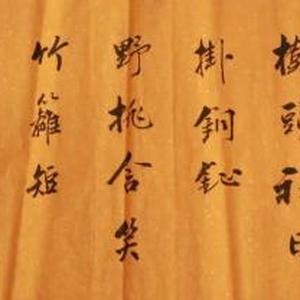 樹頭初日
掛銅鉦
野桃含笑
竹籬短